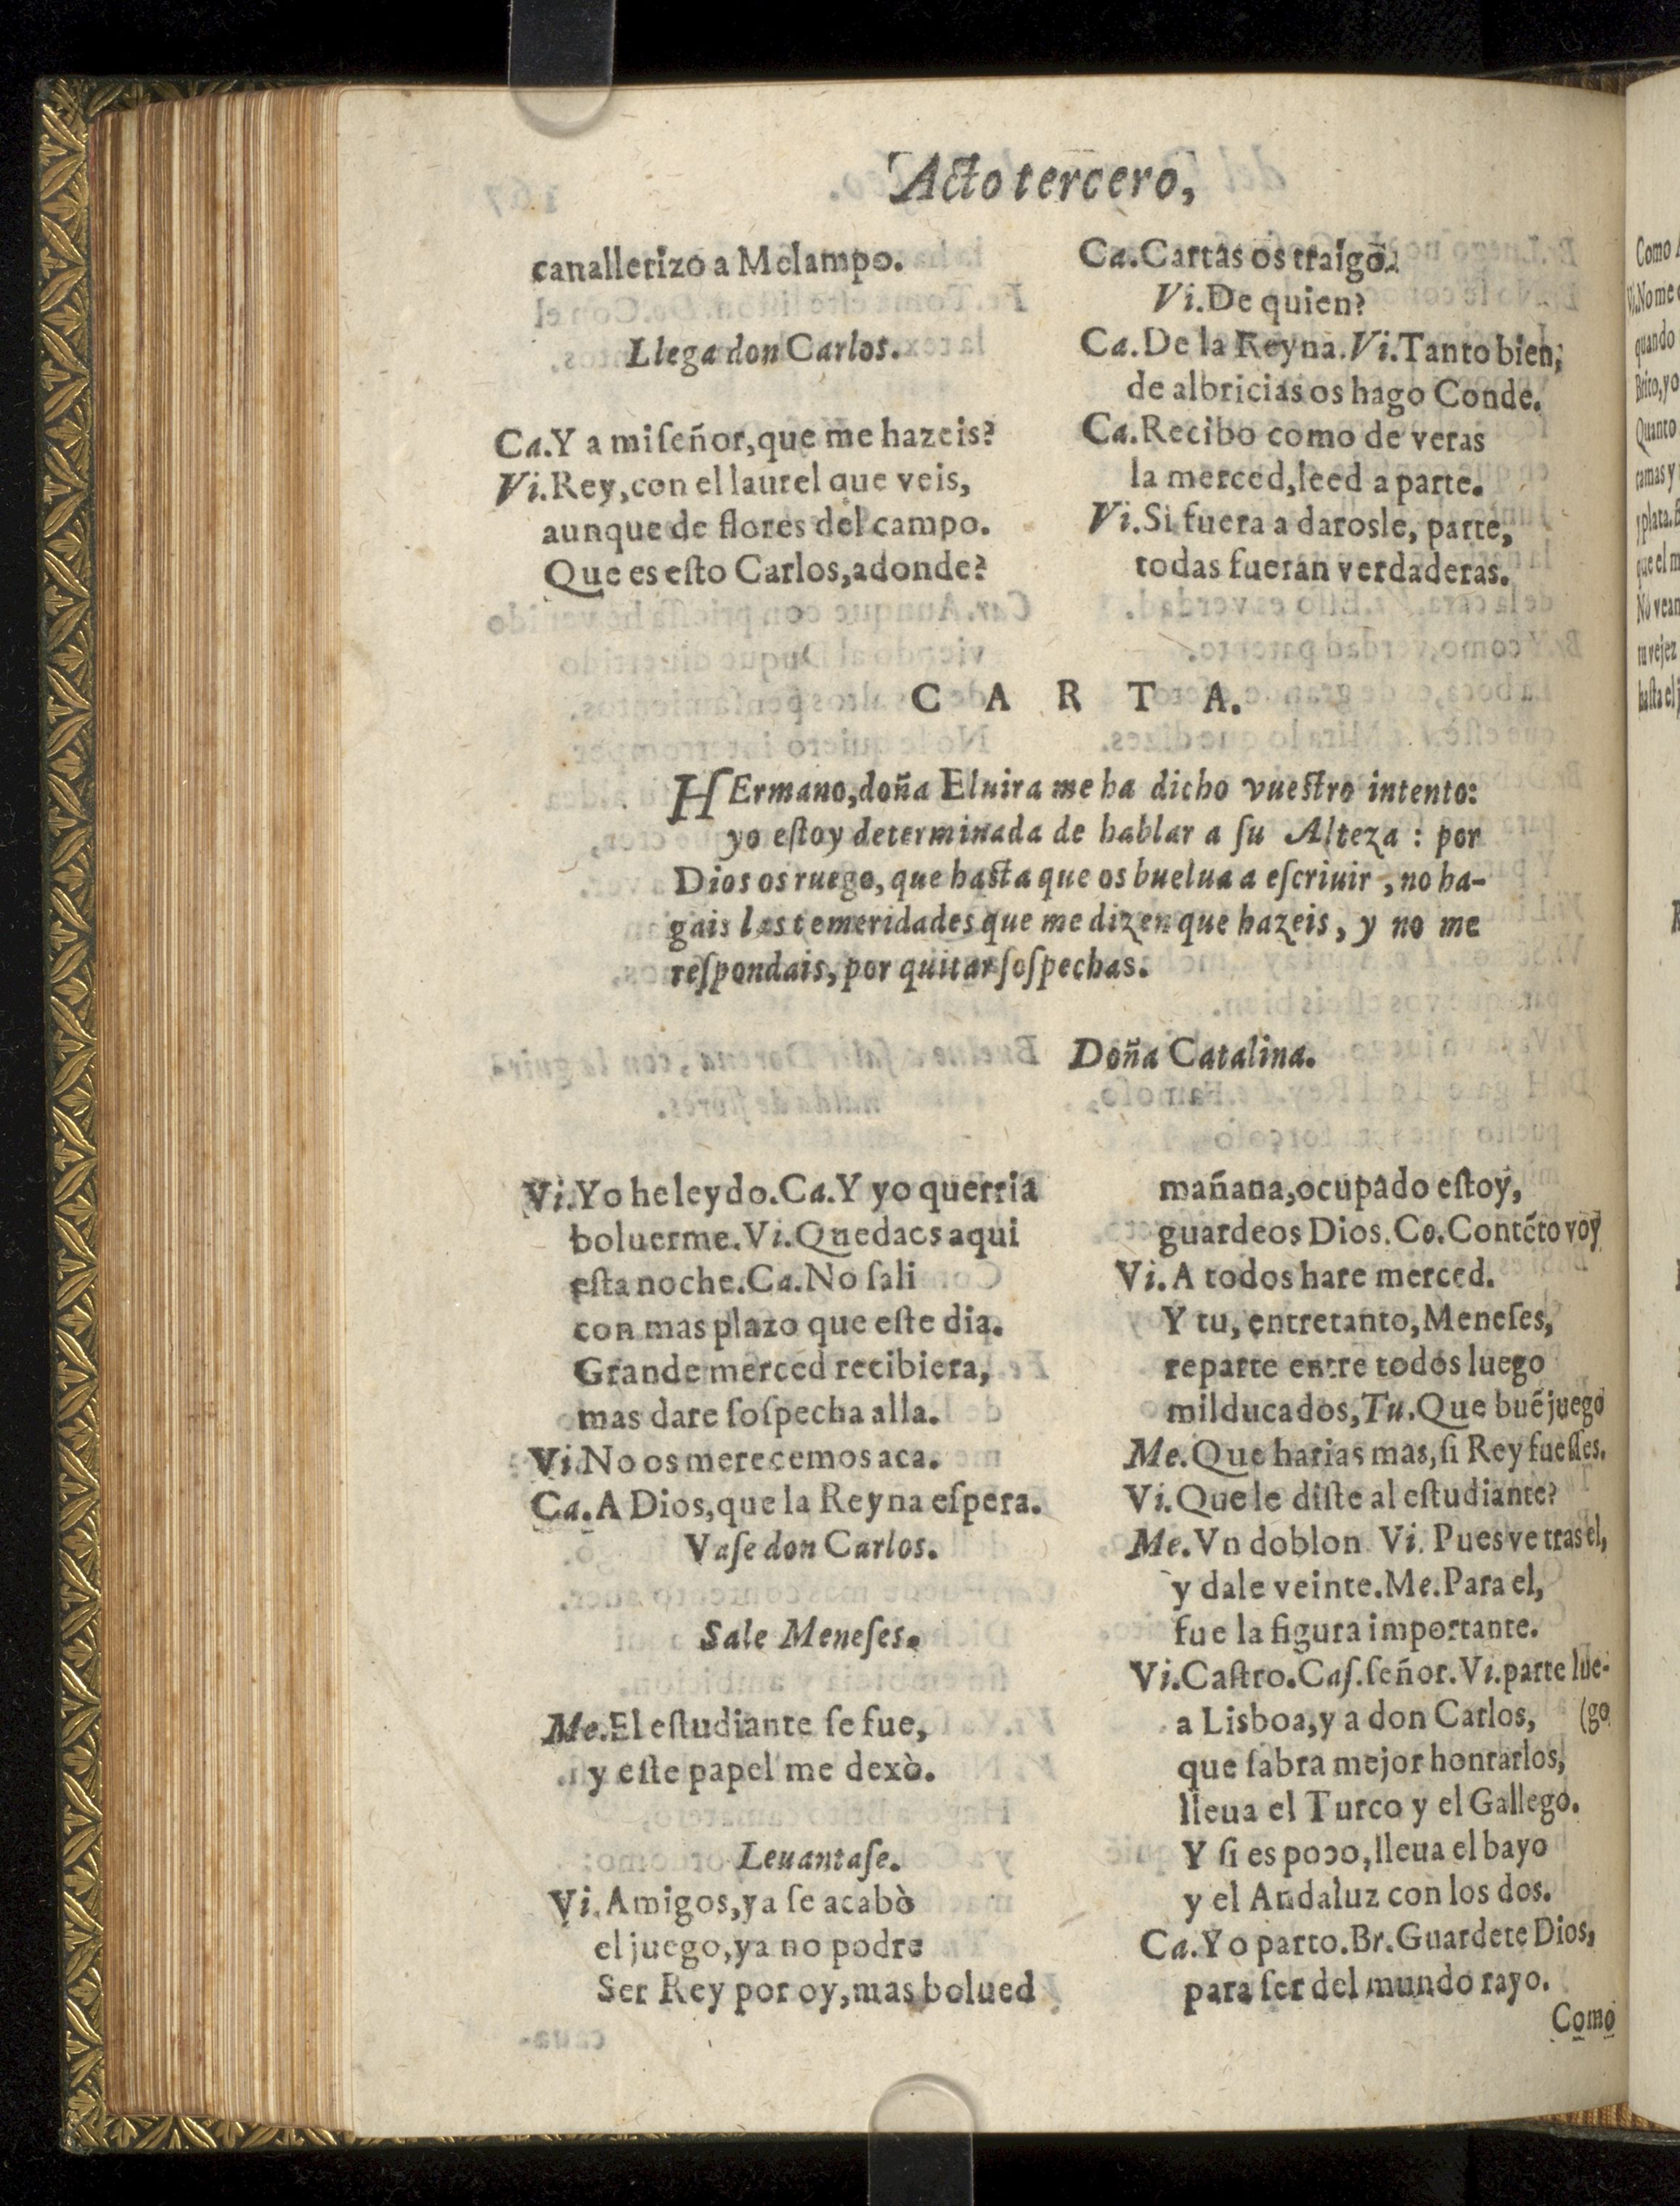 Acto tercero,
canallerizo a Melampo.
Llega don Carlos.
Ca.Y a mi ſeñor,que me hazeis?
Vi.Rey,con el laurel que veis,
aunque de flores del campo.
Que es eſto Carlos,adonde?
Ca.Cartas os traigo.
Vi.De quien?
Ca.De la Reyna.Vi.Tanto bien,
de albricias os hago Conde.
Ca.Recibo como de veras
la merced,leed a parte.
Vi.Si fuera a darosle, parte,
todas fueran verdaderas.
C A R T A.
HErmano,doña Eluira me ha dicho vueſtro intento:
yo eſtoy determinada de hablar a ſu Alteza : por
Dios os ruego, que haſta que os buelua a eſcriuir , no ha-
gais las temeridades que me dizen que hazeis, y no me
reſpondais, por quitar ſoſpechas.
Doña Catalina.
Vi.Yo he leydo.Ca.Y yo querria
boluerme.Vi.Quedaos aqui
eſta noche.Ca.No ſali
con mas plazo que eſte dia.
Grande merced recibiera,
mas dare ſoſpecha alla.
Vi.No os merecemos aca.
Ca.A Dios,que la Reyna eſpera.
Vaſe don Carlos.
Sale Meneſes.
Me.El eſtudiante ſe fue,
y eſte papel me dexò.
Leuantaſe.
Vi.Amigos,ya ſe acabò
el juego,ya no podre
Ser Rey por oy,mas bolued
mañana,ocupado eſtoy,
guardeos Dios.Co.Contẽto voy
Vi.A todos hare merced.
Y tu, entretanto,Meneſes,
reparte entre todos luego
mil ducados,Tu.Que buẽ juego
Me.Que harias mas,ſi Rey fueſſes.
Vi.Que le diſte al eſtudiante?
Me.Vn doblon. Vi. Pues ve tras el,
y dale veinte.Me.Para el,
fue la figura importante.
Vi.Caſtro.Caſ.ſeñor.Vi.parte lue-
(go
a Lisboa,y a don Carlos,
que ſabra mejor honrarlos,
lleua el Turco y el Gallego.
Y ſi es poco,lleua el bayo
y el Andaluz con los dos.
Ca.Yo parto.Br.Guardete Dios,
para ſer del mundo rayo.
Como